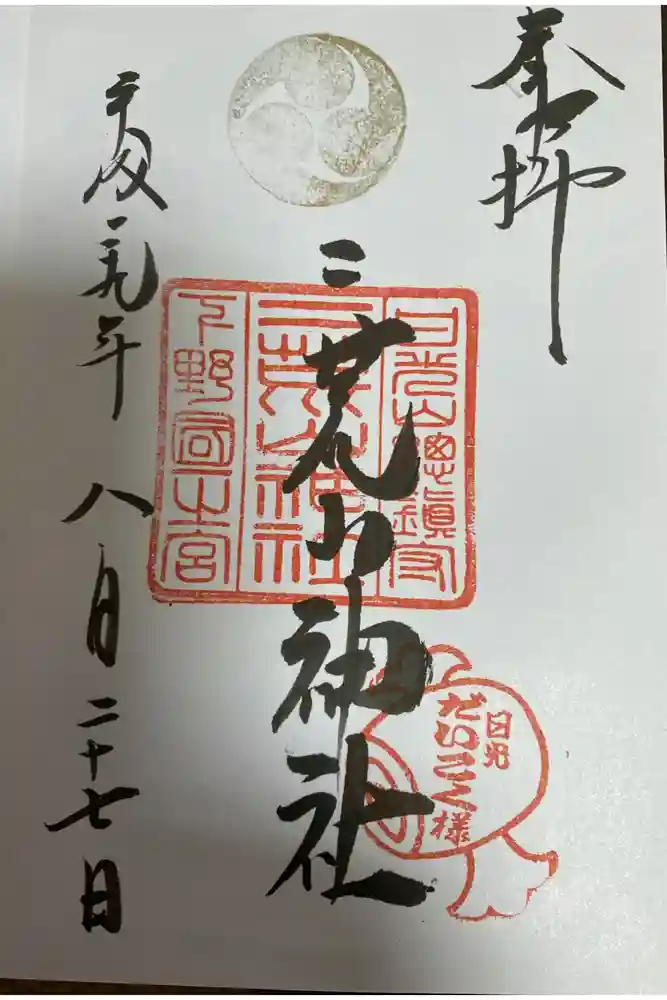 奉拝
二荒山神社
日光山總鎮守
二荒山神社
下野國一之宮
日光
だいこく様
平成二九年 八月二十七日